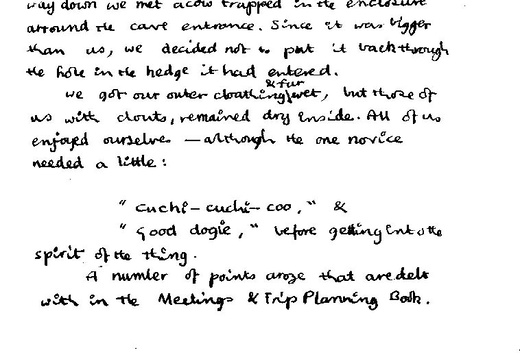 way down we met a cow trapped in the enclosure
arround the cave entrance. Since it was bigger
than us, we decided not to put it back through
the hole in the hedge it had entered.
& fur
we got our outer cloathing wet, but those of
us with clouts, remained dry inside. All of us
enjoyed ourselves — although the one novice
needed a little :
" cuchi - cuchi - coo, " &
" Good dogie, " before getting into the
spirit of the thing.
A number of points aroze that are delt
with in the Meetings & Trip Planning Book.